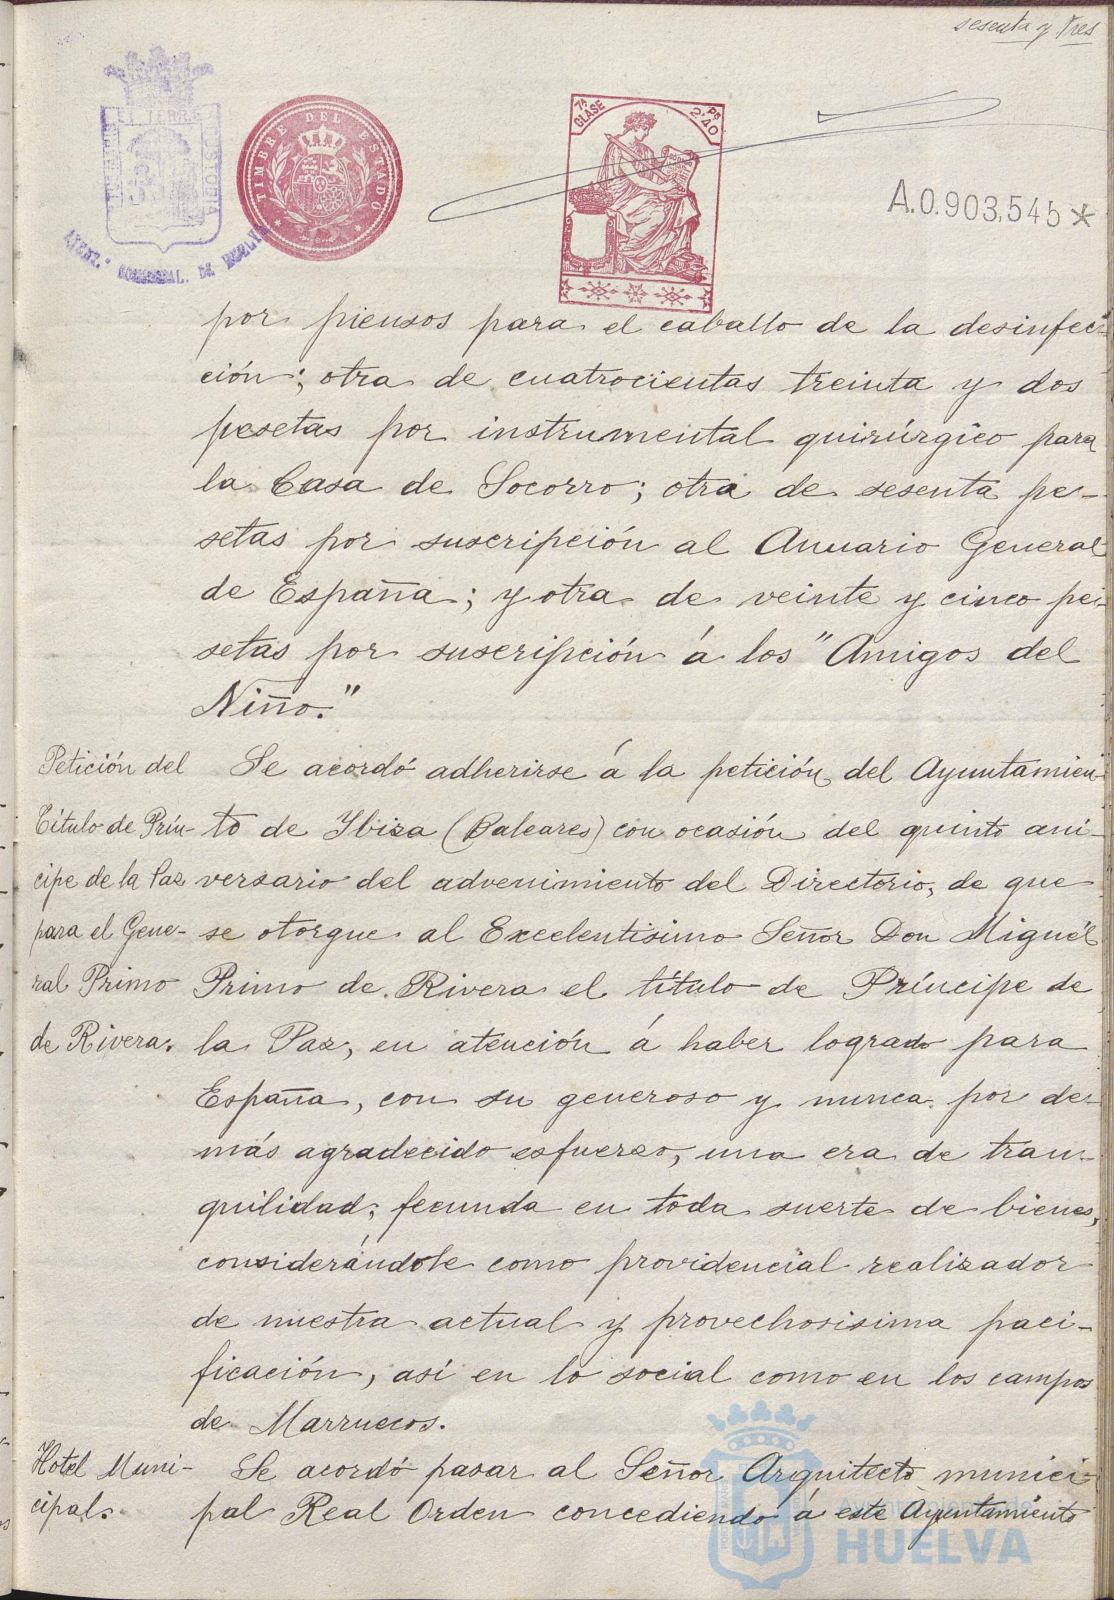 sesenta y tres
TIMBRE DEL ESTADO
7ª CLASE
Ps 2'40
A.0.903,545*
por piensos para el caballo de la desinfec-
ción; otra de cuatrocientas treinta y dos
pesetas por instrumental quirúrgico para
la Casa de Socorro; otra de sesenta pe-
setas por suscripción al Anuario General
de España; y otra de veinte y cinco pe-
setas por suscripción á los "Amigos del
Niño."
Petición del
Título de Prín-
cipe de la Paz
para el Gene-
ral Primo
de Rivera.
Se acordó adherirse á la petición del Ayuntamien-
to de Ybiza (Baleares) con ocasión del quinto ani-
versario del advenimiento del Directorio, de que
se otorgue al Excelentisimo Señor Don Miguel
Primo de Rivera el título de Príncipe de
la Paz, en atención á haber logrado para
España, con su generoso y nunca por de-
más agradecido esfuerzo, una era de tran-
quilidad, fecunda en toda suerte de bienes,
considerándole como providencial realizador
de nuestra actual y provechosisima paci-
ficación, así en lo social como en los campos
de Marruecos.
Hotel Muni-
cipal.
Se acordó pasar al Señor Arquitecto munici-
pal Real Orden concediendo á este Ayuntamiento
Ayuntamiento de
HUELVA